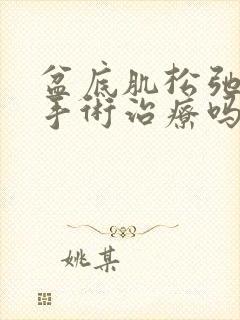 盆底肌松弛
手術治療吗
姚某